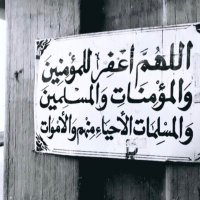 اللهُمَّ أغفِرْ للمُؤمِنينَ
وَالمؤمِنَاتِ وَالمُسْلِمينَ
وَالمُسْلِمَاتِ الأحيَاءِ مِنهُم وَالأموَات